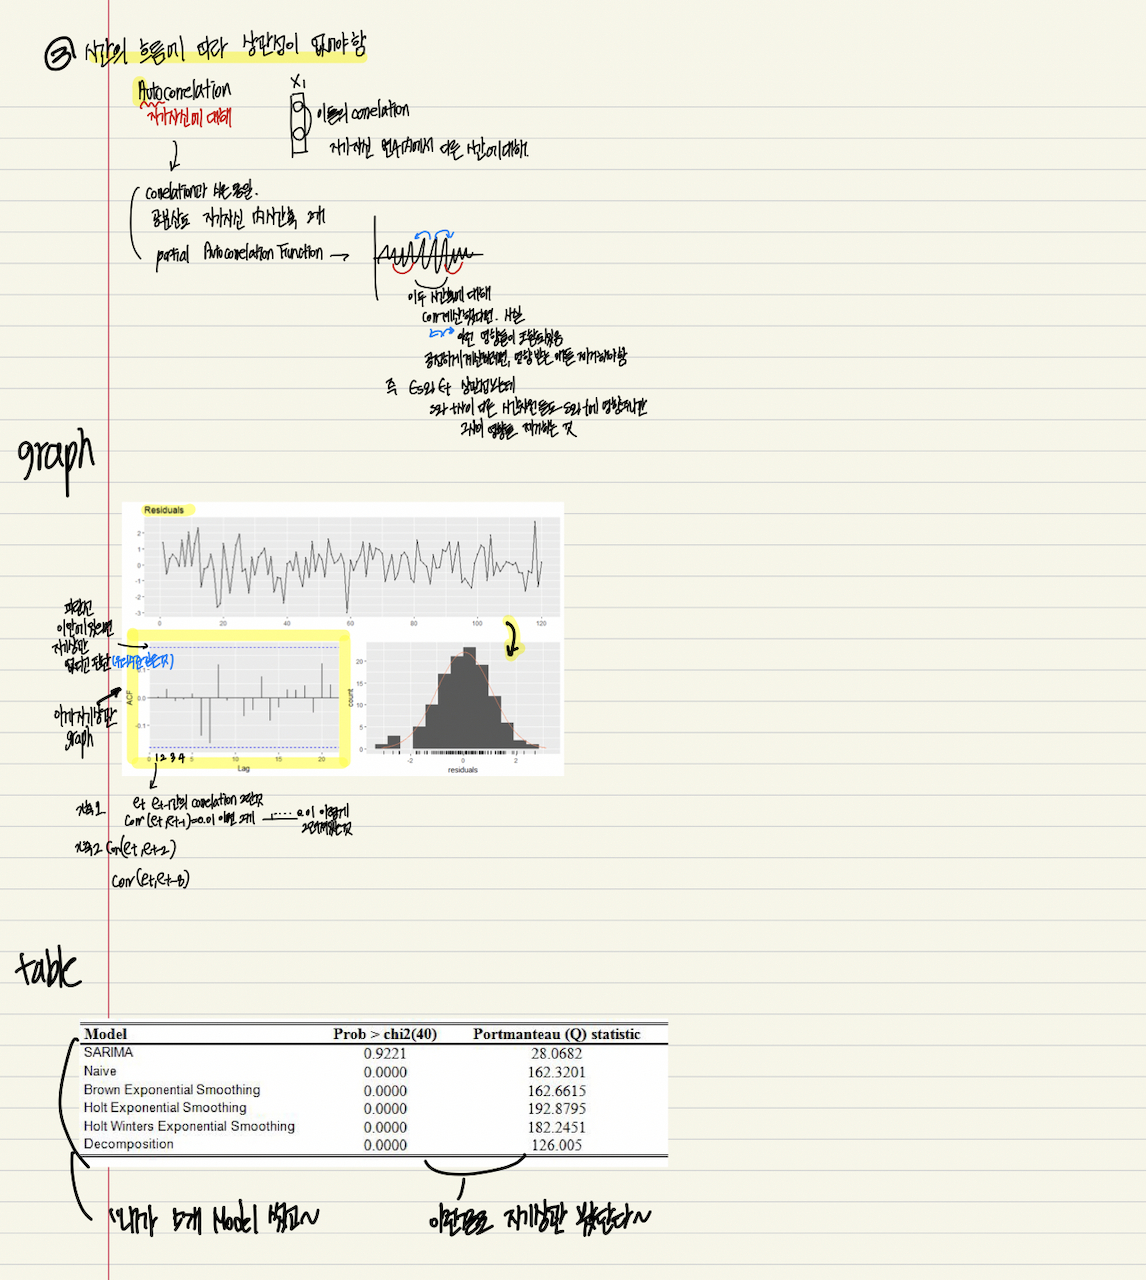 ③ 시간의 흐름에 따라 상관성이 없어야 함
Autocorrelation
자기자신에 대해
X1
이들의 correlation
자기자신 변수내에서 다른 시간에 대해.
correlation과 식은 동일.
공분산도 자기자신 내 시간축 2개
partial Autocorrelation Function →
이 두 시간에 대해
corr계산했다면. 사실
이런 영향들이 포함되있음
공정하게 계산하려면, 영향 받는 애들 제거해야함
즉 Es와 Et 상관성보는데
s와 t사이 다른 시간차원들도 s와 t에 영향주니깐
그 사이 영향을 제거하는 것
graph
Residuals
2
1
0
-1
-2
-3
0 20 40 60 80 100 120
파란선
이안에 있으면
자기상관
없다고 판단
이게 자기상관
graph
ACF
0.0
-0.1
0 5 10 15 20
1 2 3 4
Lag
count
20
15
10
5
0
-2 0 2
residuals
시차1 et et-1간의 correlation 그린것
Corr(et, et-1)=0.01 이면 그게 0.01 이렇게
그려져있는것
시차2 Corr(et, et-2)
Corr(et, et-8)
table
Model Prob > chi2(40) Portmanteau (Q) statistic
SARIMA 0.9221 28.0682
Naive 0.0000 162.3201
Brown Exponential Smoothing 0.0000 162.6615
Holt Exponential Smoothing 0.0000 192.8795
Holt Winters Exponential Smoothing 0.0000 182.2451
Decomposition 0.0000 126.005
내가 5개 Model 썼고~
이런걸로 자기상관 봤단다~